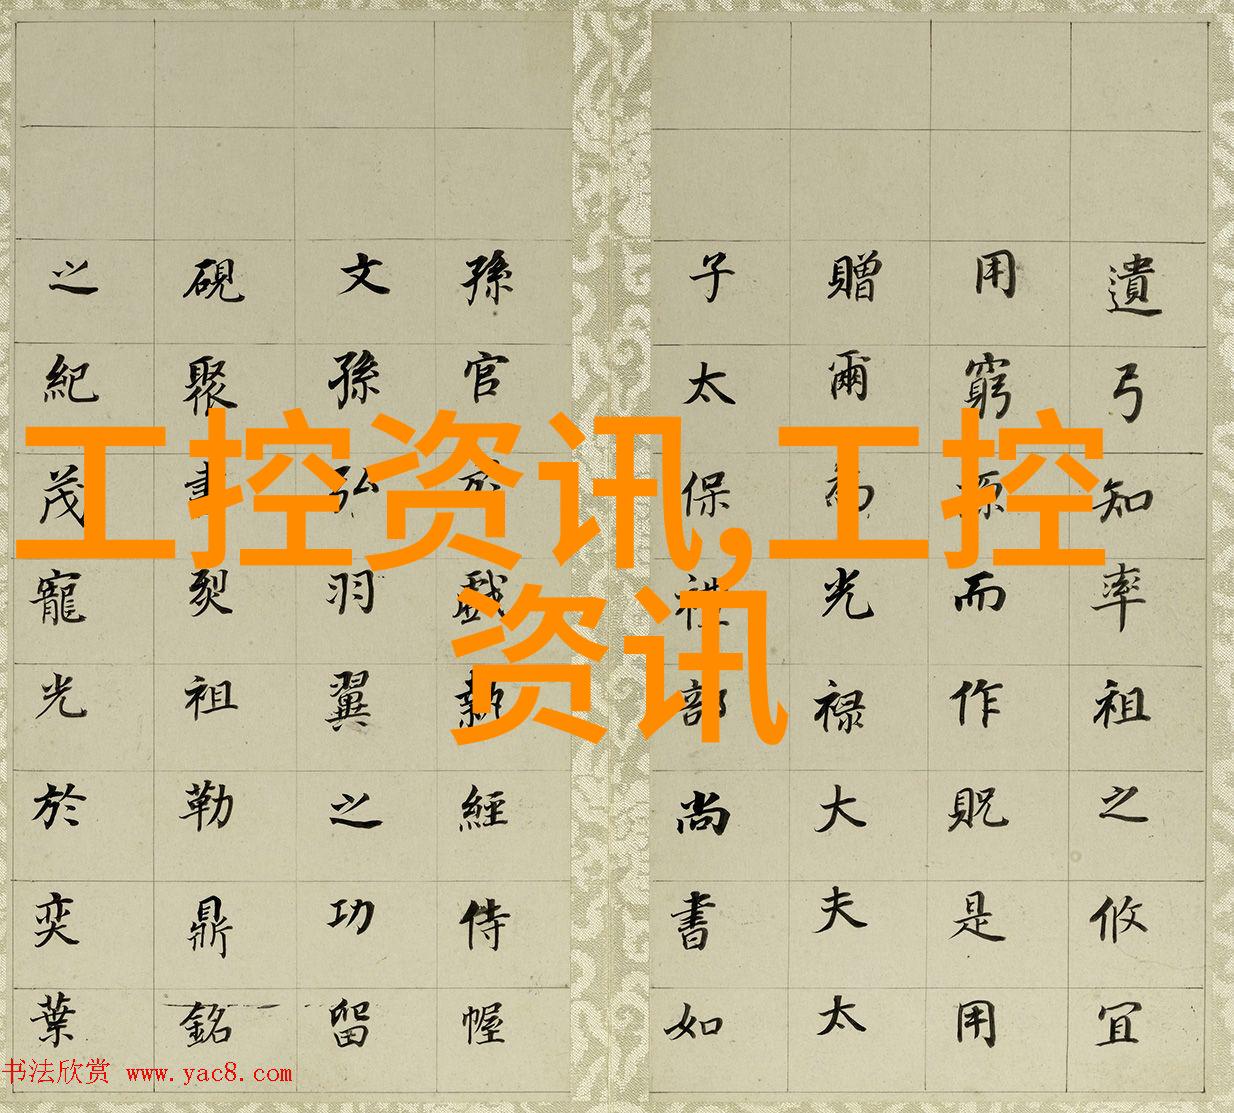 遺弓知率祖之攸宜
用窮源而作貺是用
贈爾為光禄大夫太
子太保禮部尚書如
孫官於戲執經侍幄
文孫弘羽翼之功留
硯聚書裂祖勒鼎銘
之紀茂寵光於奕葉
工控资讯,工控
资讯
书法欣赏 www.yac8.com